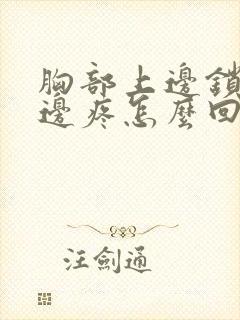 胸部上邊鎖
邊疼怎麼回
汪劍通